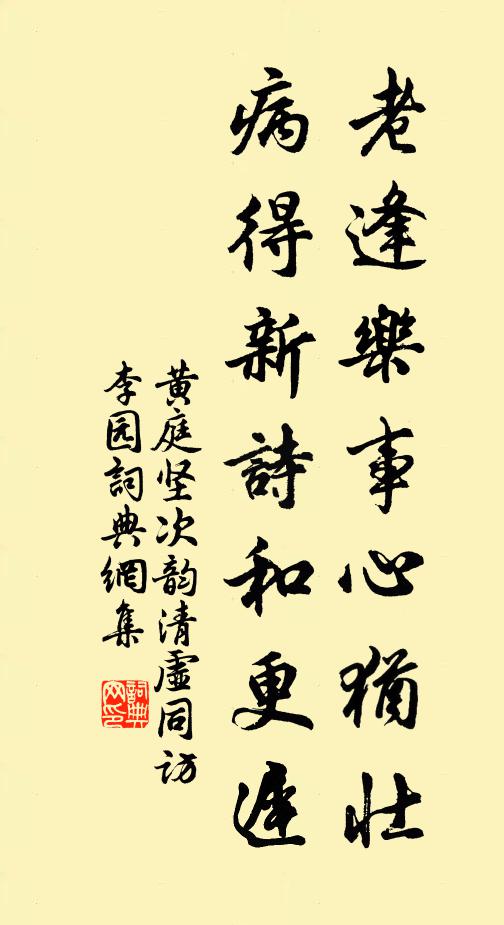 老逢樂事心猶壯
病得新詩和更遲
黄庭坚次韵清虛同访
李园詞典網集
詞典網印